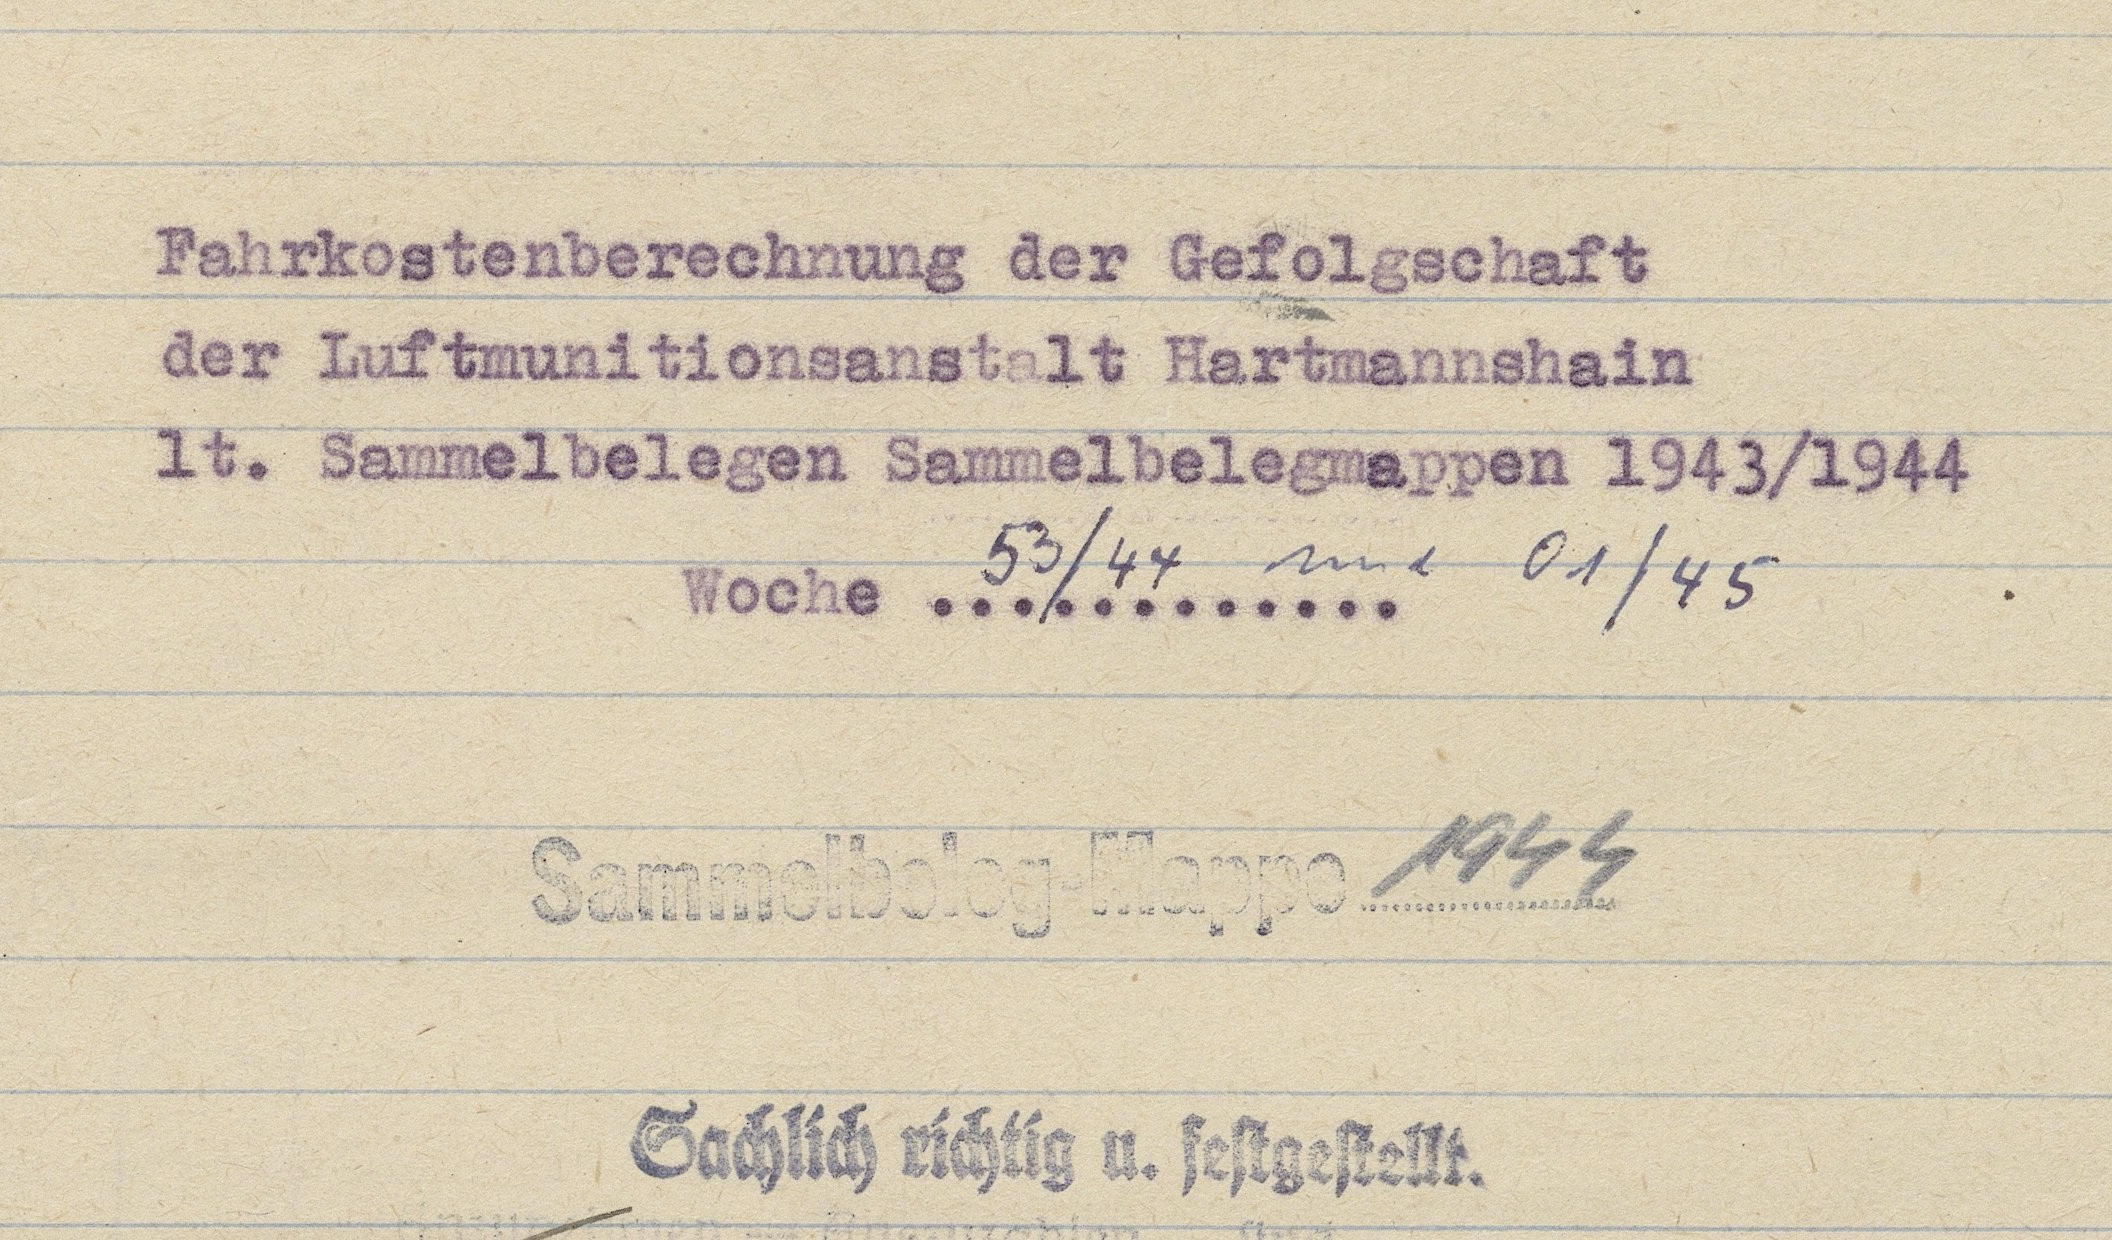 Fahrkostenberechnung der Gefolgschaft
der Luftmunitionsanstalt Hartmannshain
lt. Sammelbelegen Sammelbelegmappen 1943/1944
Woche 53/44 und 01/45
Sammelbeleg-Mappe 1944
Sachlich richtig u. festgestellt.